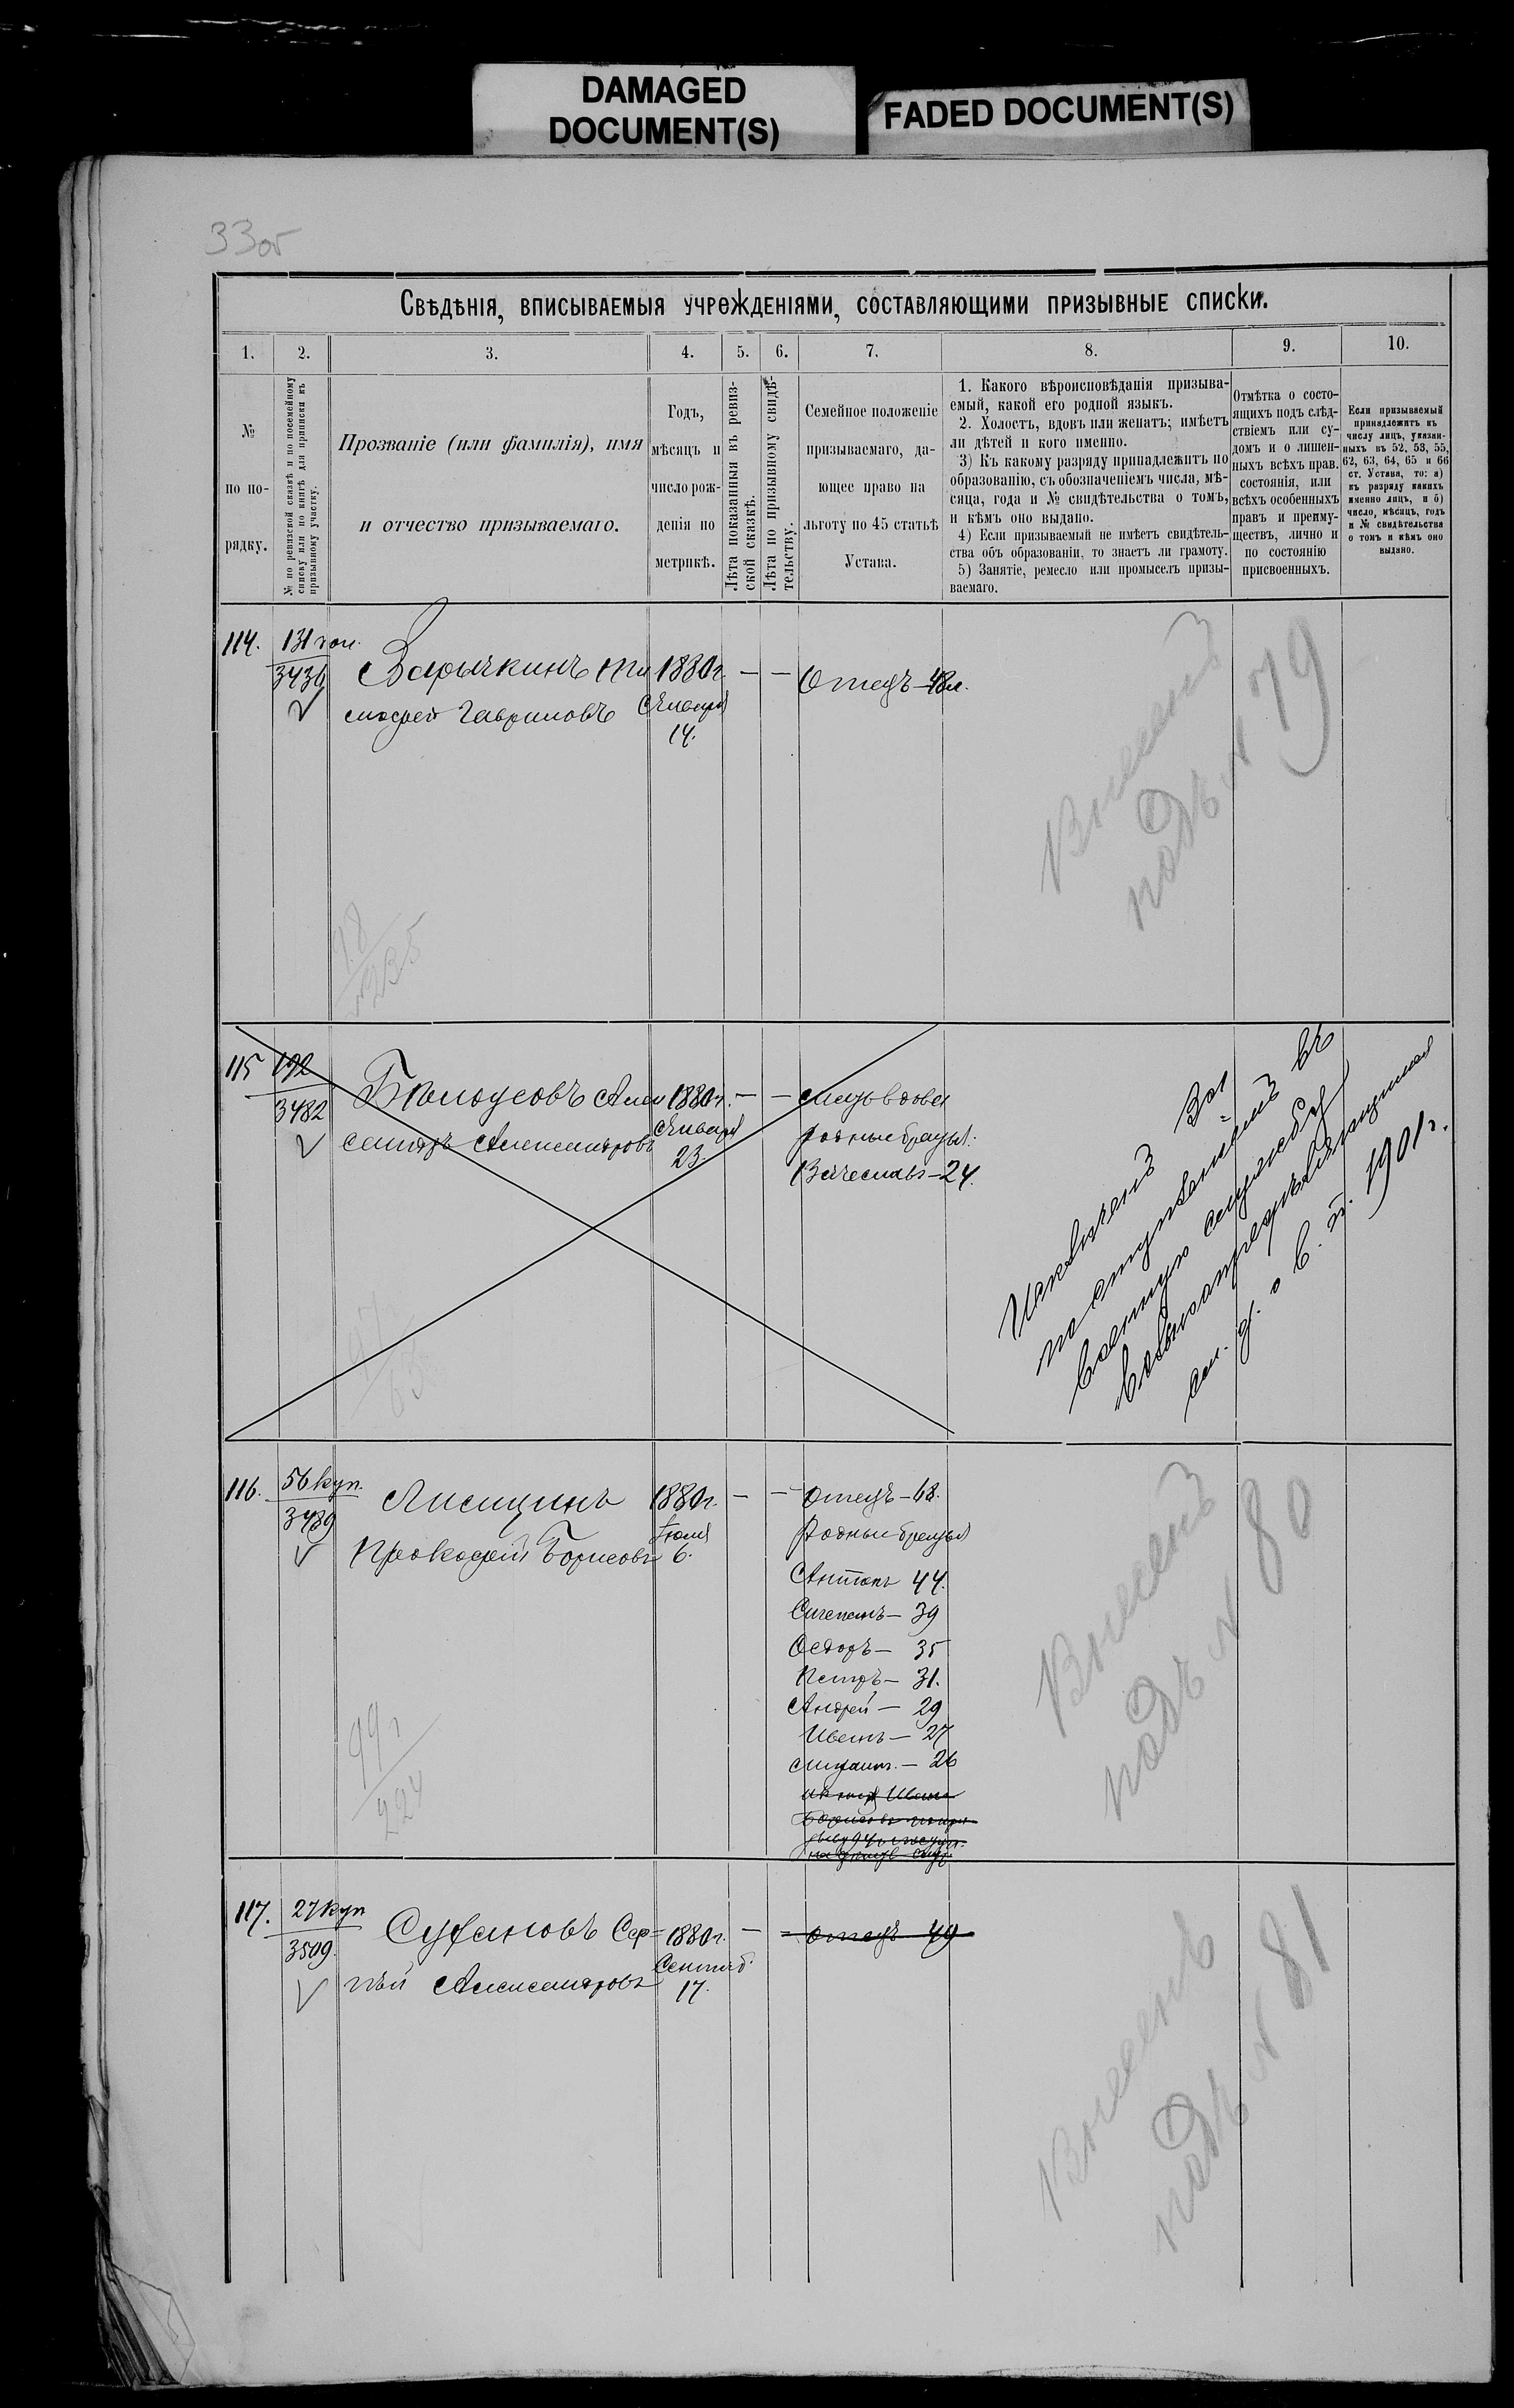 DAMAGED
DOCUMENT(S)
FADED DOCUMENT(S)
33об
Свѣдѣнія, вписываемыя учрежденіями, составляющими призывные списки.
1. 2. 3. 4. 5. 6. 7. 8. 9. 10.
№
по по-
рядку.
№ по ревизской сказкѣ и по посемейному
списку или по книгѣ для приписки къ
призывному участку.
Прозваніе (или фамилія), имя
и отчество призываемаго.
Годъ,
мѣсяцъ и
число рож-
денія по
метрикѣ.
Лѣта показанныя въ ревиз-
ской сказкѣ.
Лѣта по призывному свидѣ-
тельству.
Семейное положеніе
призываемаго, да-
ющее право на
льготу по 45 статьѣ
Устава.
1. Какого вѣроисповѣданія призыва-
емый, какой его родной языкъ.
2. Холостъ, вдовъ или женатъ; имѣетъ
ли дѣтей и кого именно.
3) Къ какому разряду принадлежитъ по
образованію, съ обозначеніемъ числа, мѣ-
сяца, года и № свидѣтельства о томъ,
и кѣмъ оно выдано.
4) Если призываемый не имѣетъ свидѣтель-
ства объ образованіи, то знаетъ ли грамоту.
5) Занятіе, ремесло или промыселъ призы-
ваемаго.
Отмѣтка о состо-
ящихъ подъ слѣд-
ствіемъ или су-
домъ и о лишен-
ныхъ всѣхъ прав.
состоянія, или
всѣхъ особенныхъ
правъ и преиму-
ществъ, лично и
по состоянію
присвоенныхъ.
Если призываемый
принадлежитъ къ
числу лицъ, указан-
ныхъ въ 52, 53, 55,
62, 63, 64, 65 и 66
ст. Устава, то: а)
къ разряду какихъ
именно лицъ, и б)
число, мѣсяцъ, годъ
и № свидѣтельства
о томъ и кѣмъ оно
выдано.
114. 131
3436
Зарычкинъ Ти
мофей Гавриловъ
1880г.
Января
14.
— —
Отецъ – 48л.
Внесенъ
подъ № 79
98
235
115 192
3482
Бѣлоусовъ Алек
сандръ Александровъ
1880г.
Января
23.
— —
мать вдова
родные братья:
Вячеславъ – 24.
Исключенъ за
поступленіемъ въ
военную службу
вольноопредѣляющимся
1901г.
97
63
116. 56 куп.
3489
Лисицинъ
Прокофій Борисовъ
1880г.
Іюля
6.
— —
Отецъ – 68.
Родные братья
Антонъ 44.
Степанъ – 39
Ѳедоръ – 35
Петръ – 31.
Андрей – 29
Иванъ – 27
– 26
Внесенъ
подъ № 80
99
224
117. 27 куп
3509.
Сухановъ Сер-
гѣй Александровъ
1880г.
Сентяб.
17.
—
отецъ 49
Внесенъ
подъ № 81